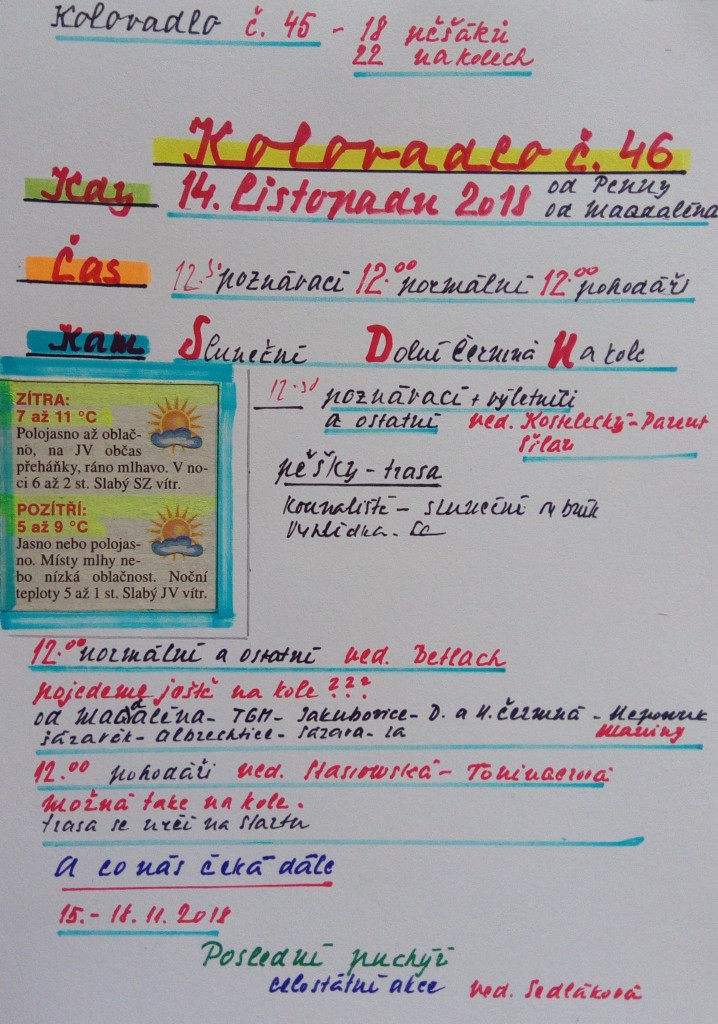 Kolovadlo č. 45 - 18 pěšáků
22 na kolech
Kolovadlo č. 46
Kdy 14. listopadu 2018 od Penny
od Magdaléna
Čas 12.30 poznávací 12.00 normální 12.00 pohodáři
Kam Sluneční Dolní Čermná Na kole
ZÍTRA:
7 až 11 °C
Polojasno až oblač-
no, na JV občas
přeháňky, ráno mlhavo. V no-
ci 6 až 2 st. Slabý SZ vítr.
POZÍTŘÍ:
5 až 9 °C
Jasno nebo polojas-
no. Místy mlhy ne-
bo nízká oblačnost. Noční
teploty 5 až 1 st. Slabý JV vítr.
12.30 poznávací + výletníci
a ostatní ved. Kostelecký - Parent
pěšky - trasa
- sluneční rybník
Vyhlídka - LA
12.00 normální a ostatní ved. Betlach
pojedeme ještě na kole ???
od Magdaléna - TGM - Jakubovice - D. a H. Čermná - Nepomuk
Sázavák - Albrechtice - Sázava - LA Mariny
12.00 pohodáři ved. -
možná take na kole.
trasa se určí na startu
A co nás čeká dále
15. - 18. 11. 2018
Poslední puchýř
celostátní akce ved. Sedláková